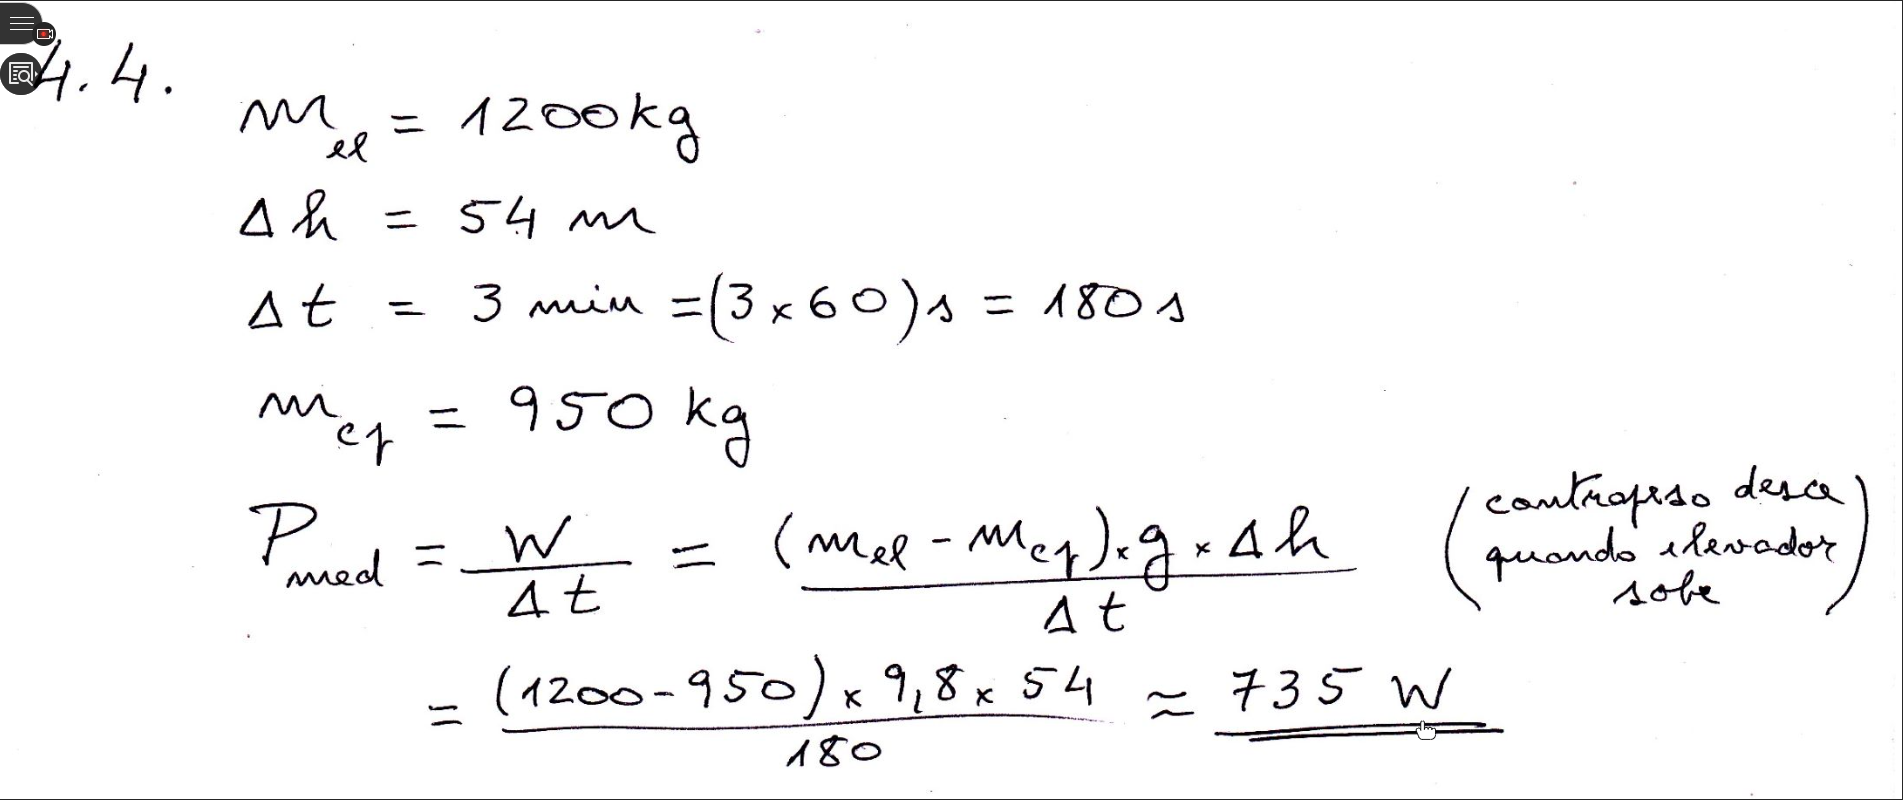 4.4.
m_el = 1200 kg
Δh = 54 m
Δt = 3 min = (3 × 60) s = 180 s
m_cp = 950 kg
P_med = W/Δt = (m_el - m_cp) × g × Δh / Δt
(contrapeso desce
quando elevador
sobe)
= (1200 - 950) × 9,8 × 54 / 180 ≈ 735 W